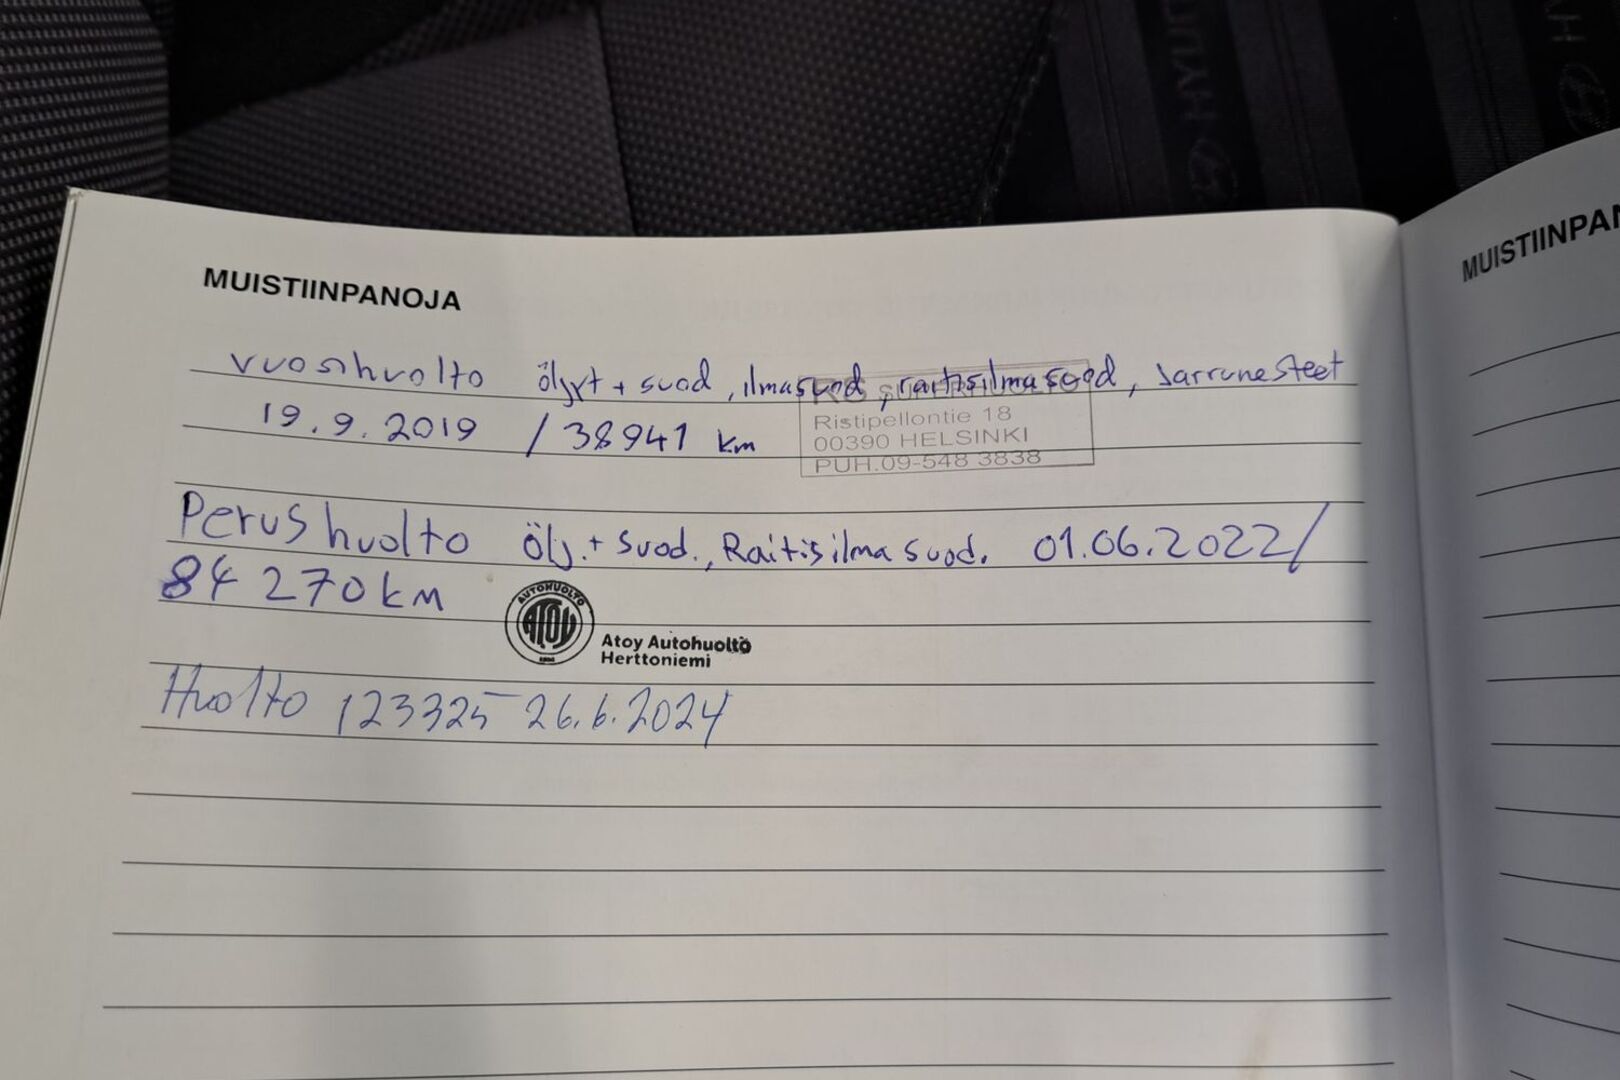 HYUN
HY
MUISTIINPANOJA
vuosihuolto öljyt + suod, ilmasuod, raitisilmasuod, Jarrunesteet
19.9.2019 / 38941 km
Ristipellontie 18
00390 HELSINKI
PUH.09-548 3838
Perushuolto Ölj.+ suod., Raitisilmasuod. 01.06.2022/
84 270km
AUTOHUOLTO
ATOY
Atoy Autohuolto
Herttoniemi
Huolto 123325 26.6.2024
MUISTIINPA